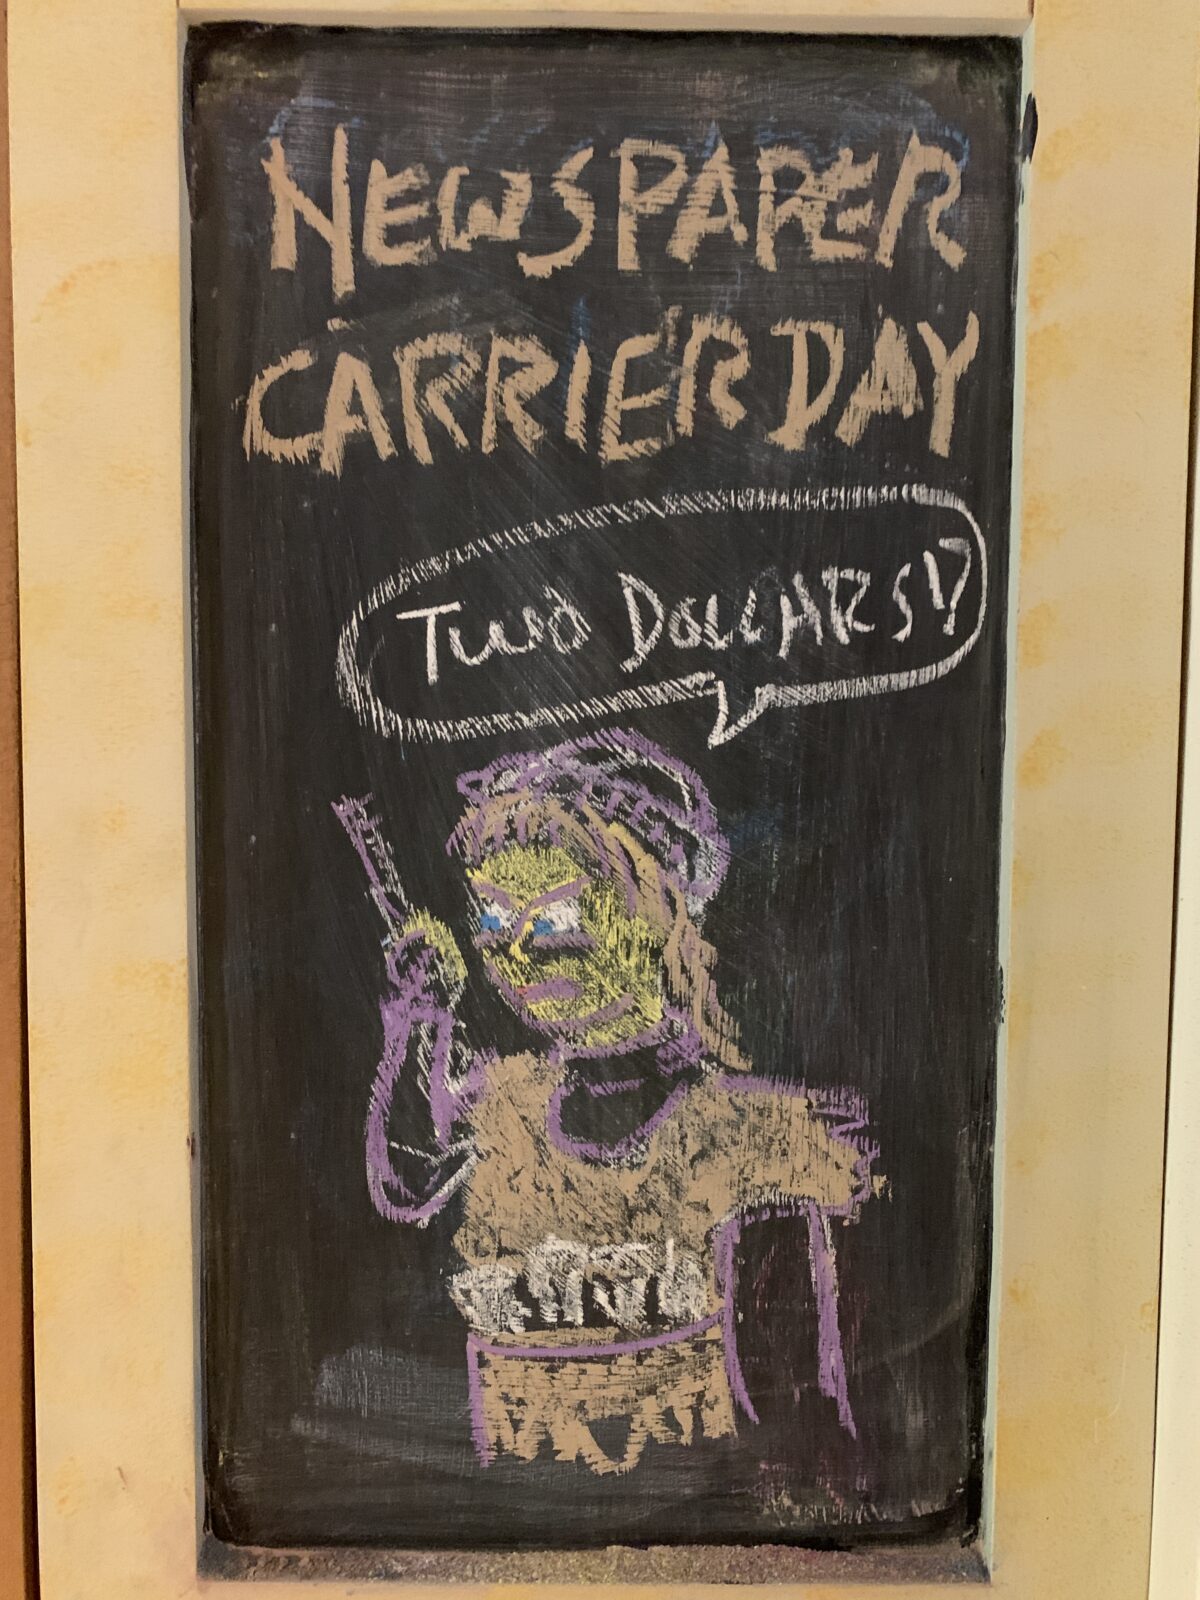 NEWSPAPER
CARRIER DAY
TWO DOLLARS!?